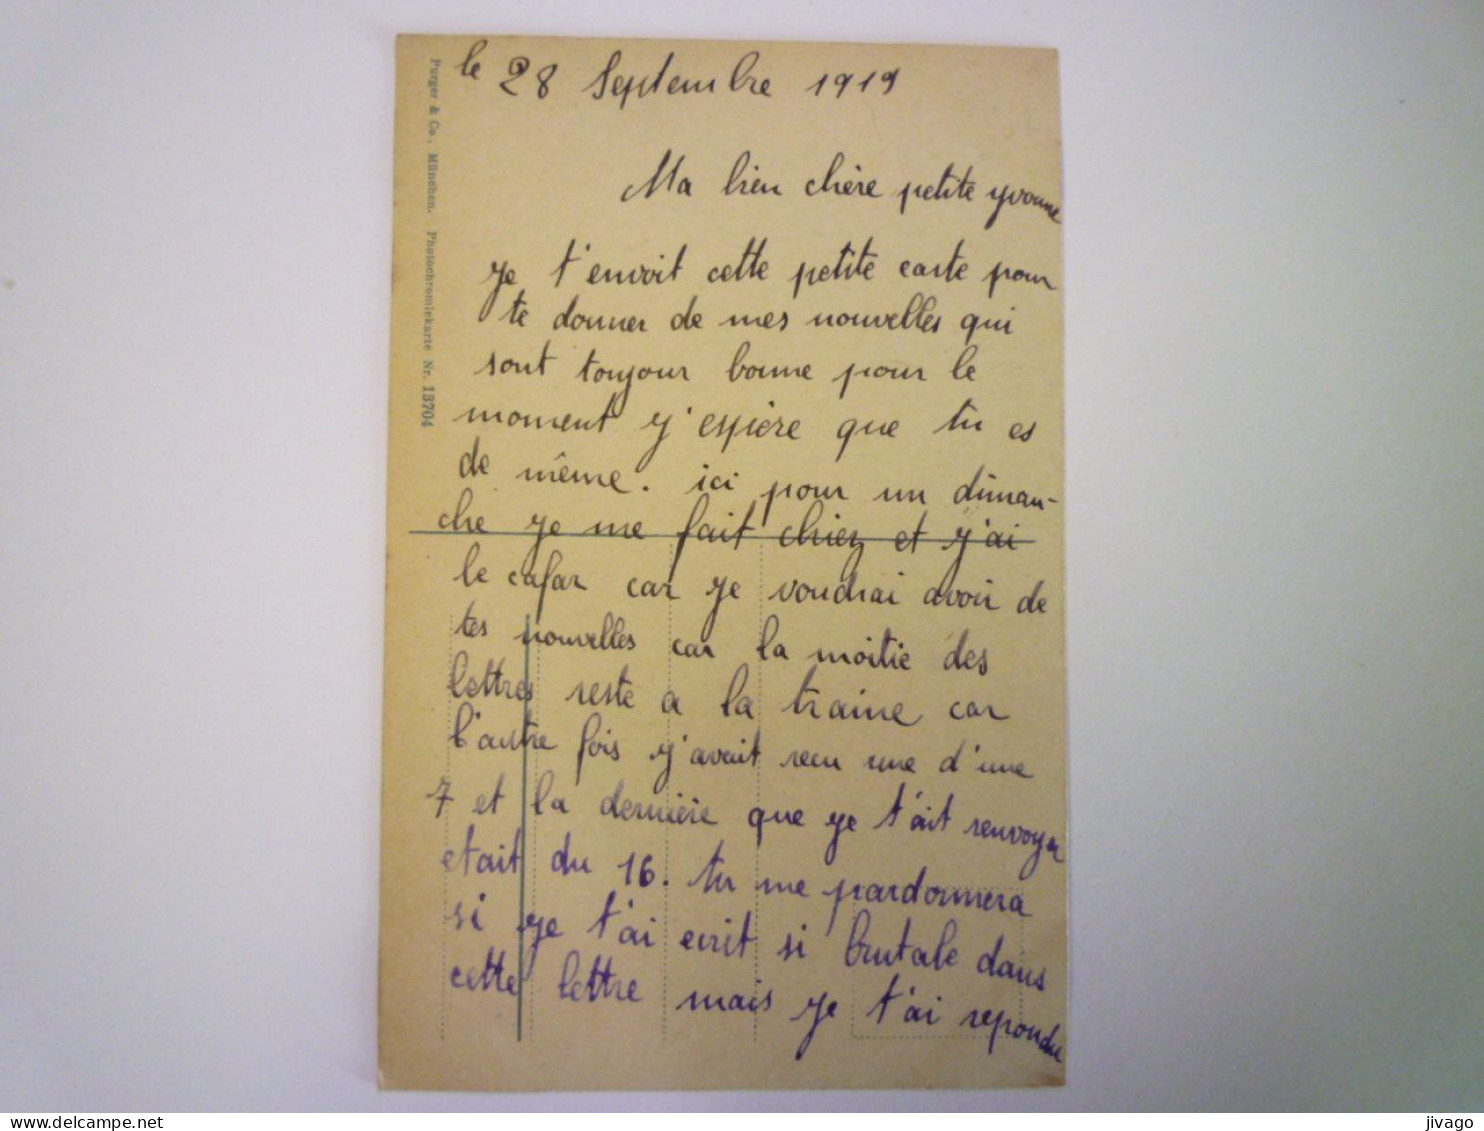 le 28 Septembre 1919
Ma bien chère petite yvonne
je t'envoit cette petite carte pour
te donner de mes nouvelles qui
sont toujour bonne pour le
moment j'espère que tu es
de même. ici pour un diman-
che je me fait chiez et j'ai
le cafar car je voudrai avoir de
tes nouvelles car la moitie des
lettres reste a la traine car
l'autre fois j'avait recu une d'une
7 et la dernière que je t'ait renvoyer
etait du 16. tu me pardonnera
si je t'ai ecrit si brutale dans
cette lettre mais je t'ai repondu
Purger & Co., München. Photochromiekarte Nr. 13704
jivago